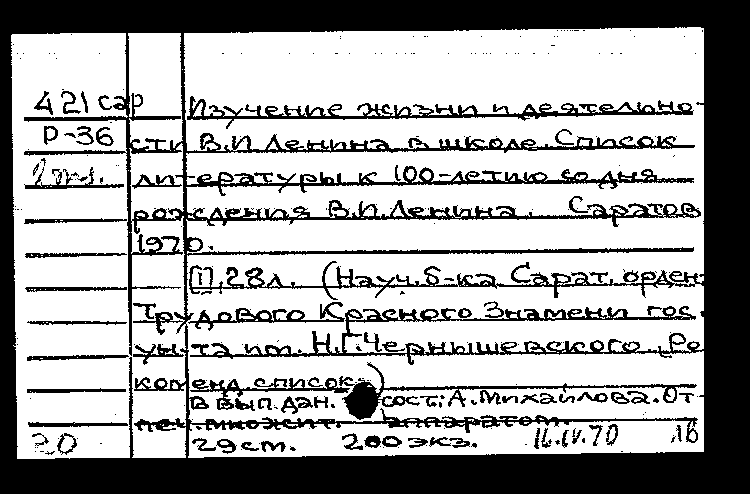 421 сар Изучение жизни и деятельно-
Р-36 сти В.И Ленина в школе. Список
2 экз. литературы к 100-летию со дня
рождения В.И.Ленина. Саратов
1970.
[1], 28л. (Науч. б-ка Сарат. орден
Трудового Красного Знамени гос.
ун-та им. Н.Г.Чернышевского. Ре
коменд. список)
В вып.дан. сост: А.Михайлова. От-
печ. множит. аппаратом.
20 29см. 200 экз. 16.IV.70 ЛВ